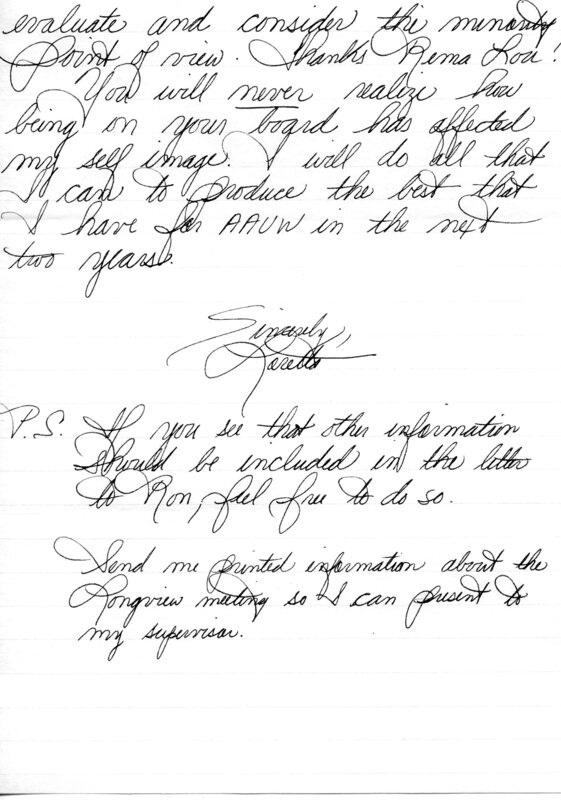 evaluate and consider the minority
point of view. Thanks Rema Lou!
You will never realize how
being on your board has affected
my self image. I will do all that
I can to produce the best that
I have for AAUW in the next
two years.
Sincerely,
Loretta
P.S. If you see that other information
should be included in the letter
to Ron, feel free to do so.
Send me printed information about the
Longview meeting so I can present to
my supervisor.